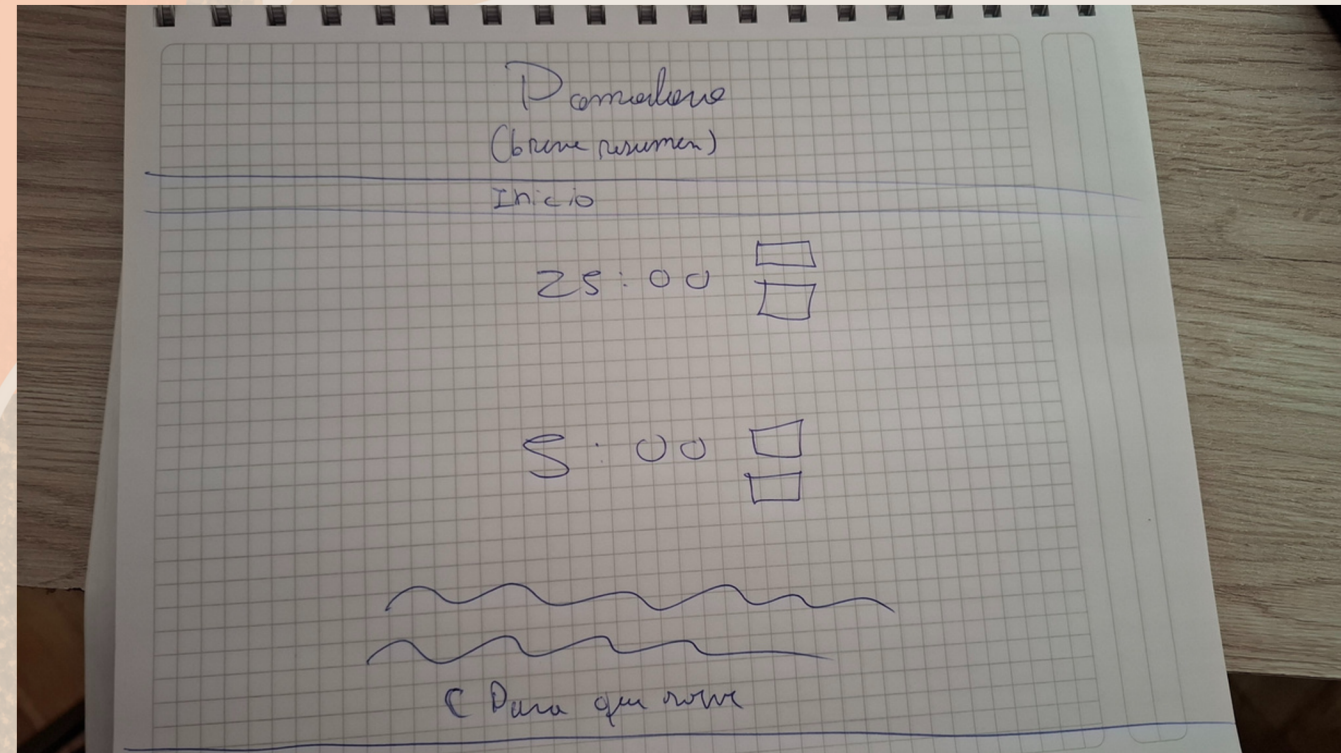 Pomodoro
(breve resumen)
Inicio
25:00
5:00
(Para que sirve